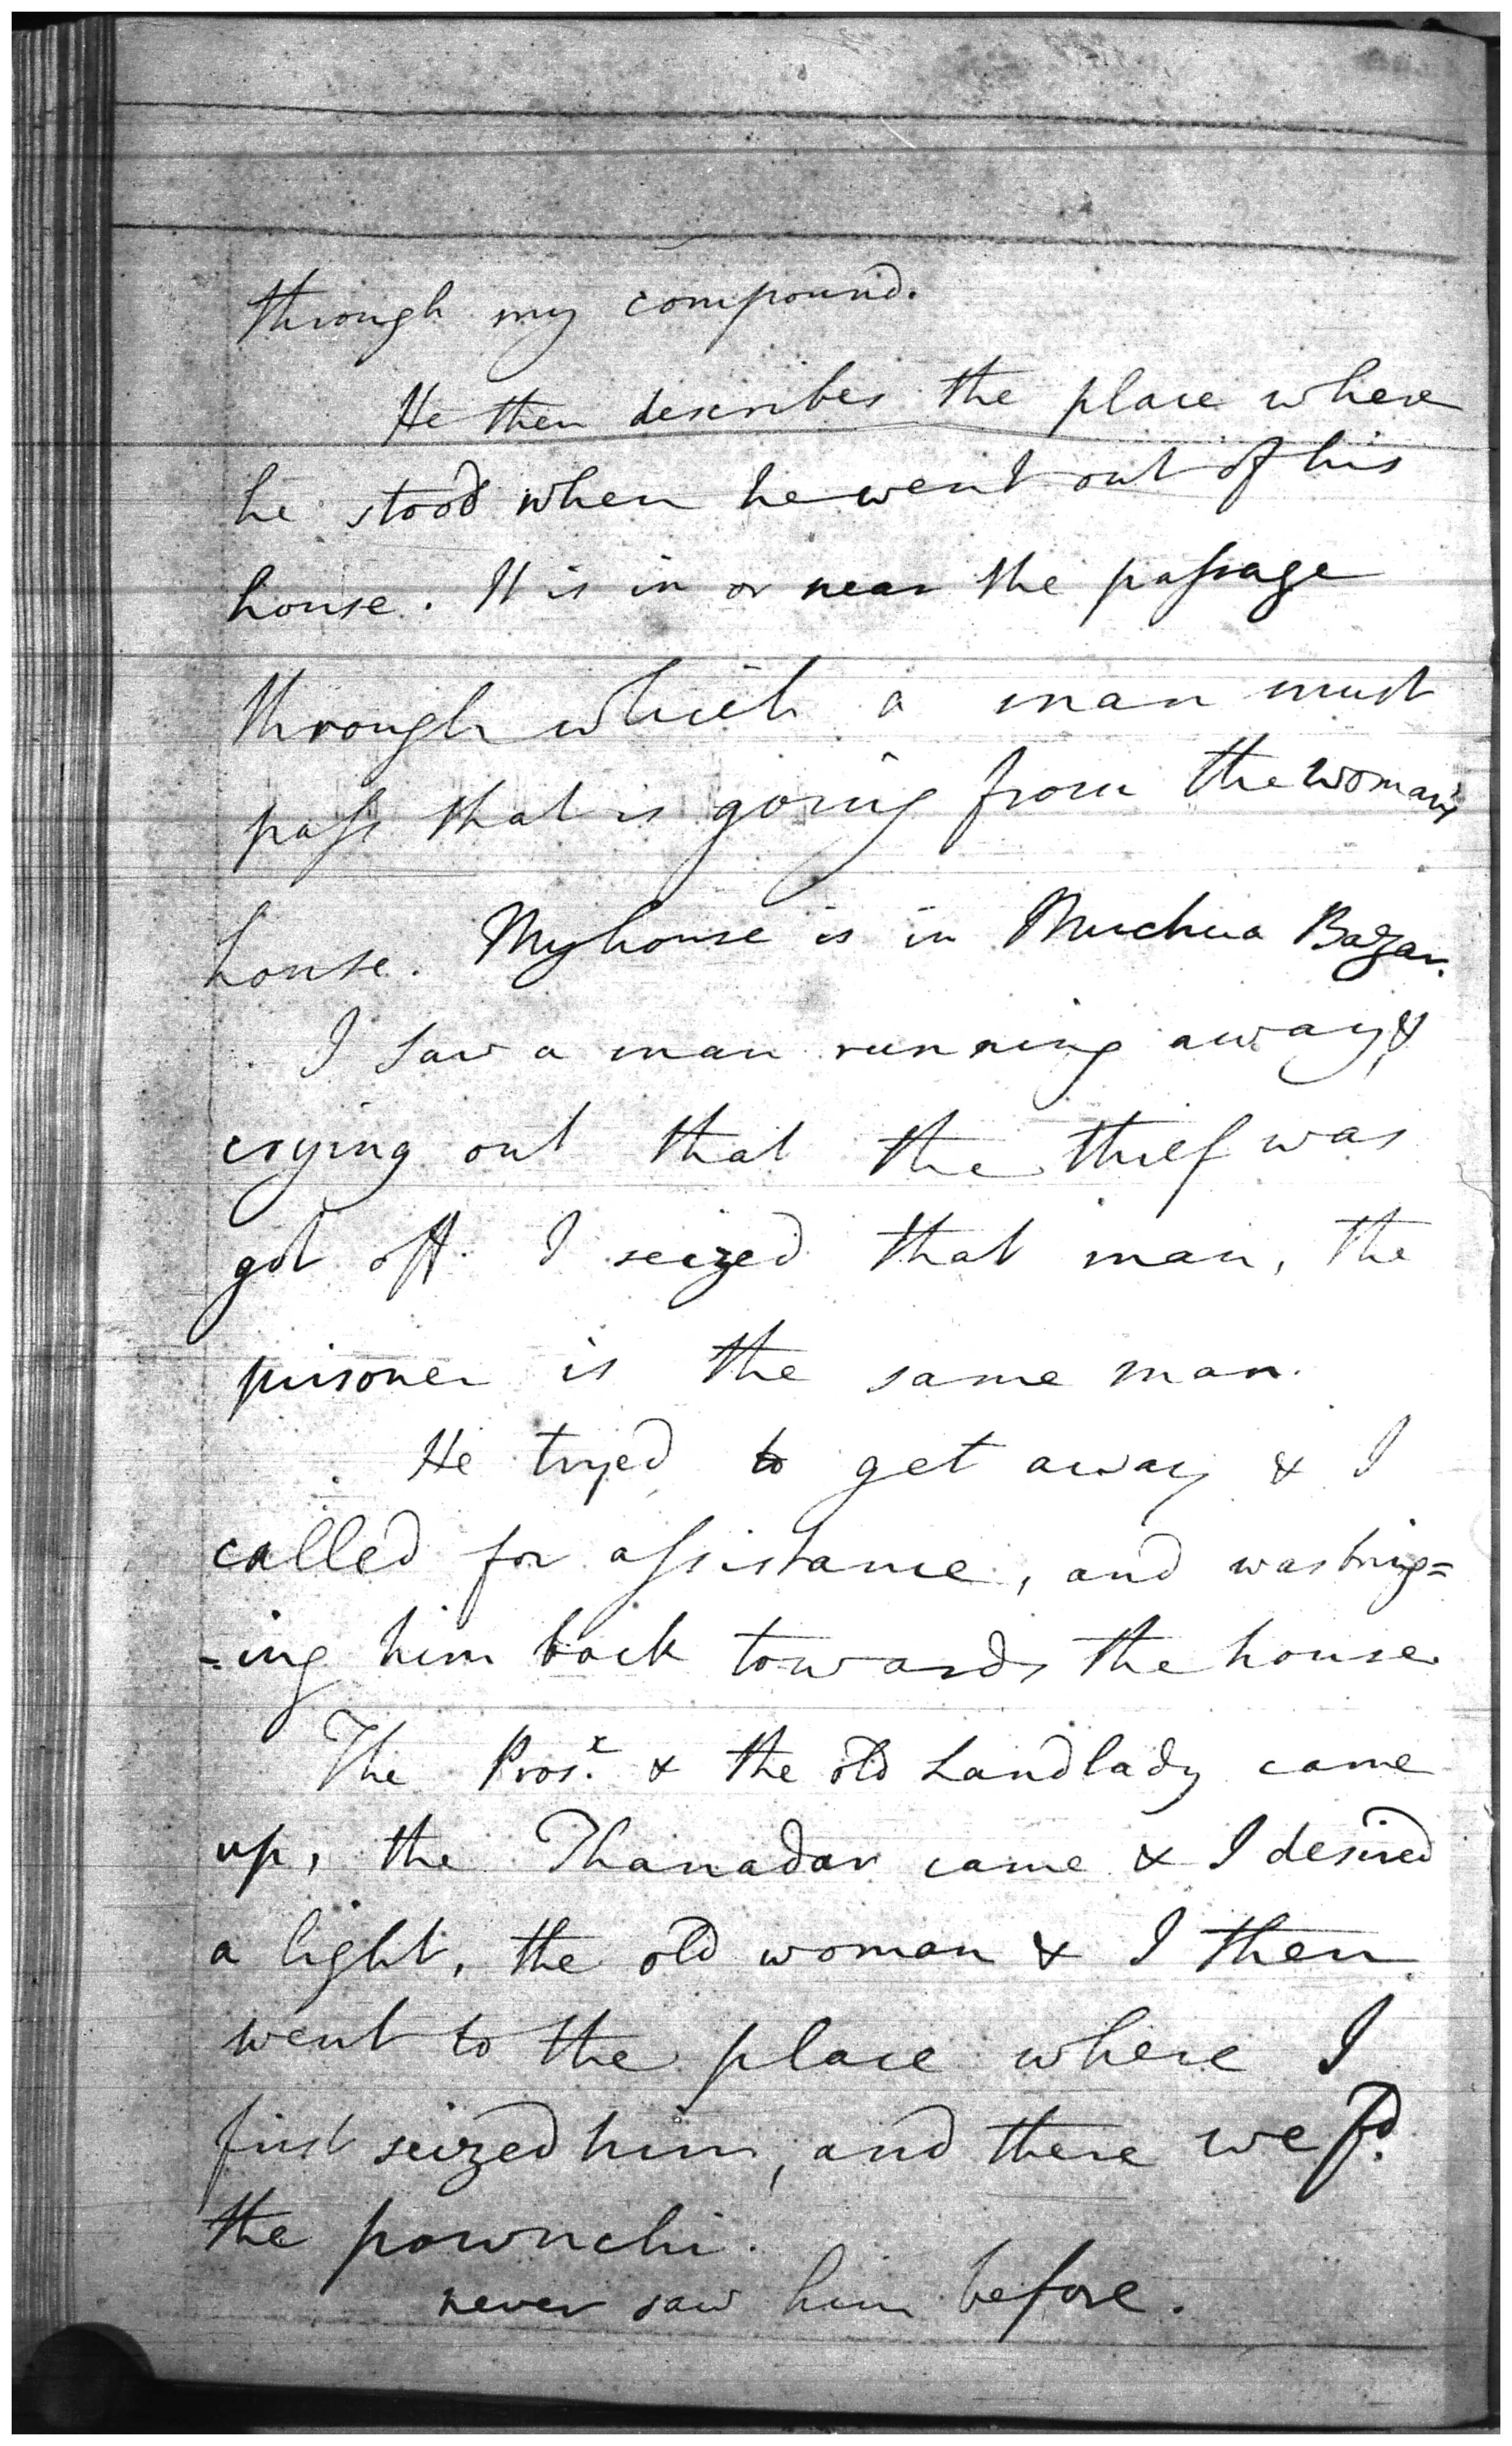 through my compound.
He then describes the place where
he stood when he went out of his
house. It is in or near the passage
through which a man must
pass that is going from the woman's
house. My house is in Muchua Bazar.
I saw a man running away &
crying out that the thief was
got off. I seized that man, the
prisoner is the same man.
He tryed to get away & I
called for assistance, and was bring=
=ing him back towards the house.
The Pros.x & the old Landlady came
up, the Thanadar came & I desired
a light, the old woman & I then
went to the place where I
first seized him, and there we fd.
the pownchi.
never saw him before.